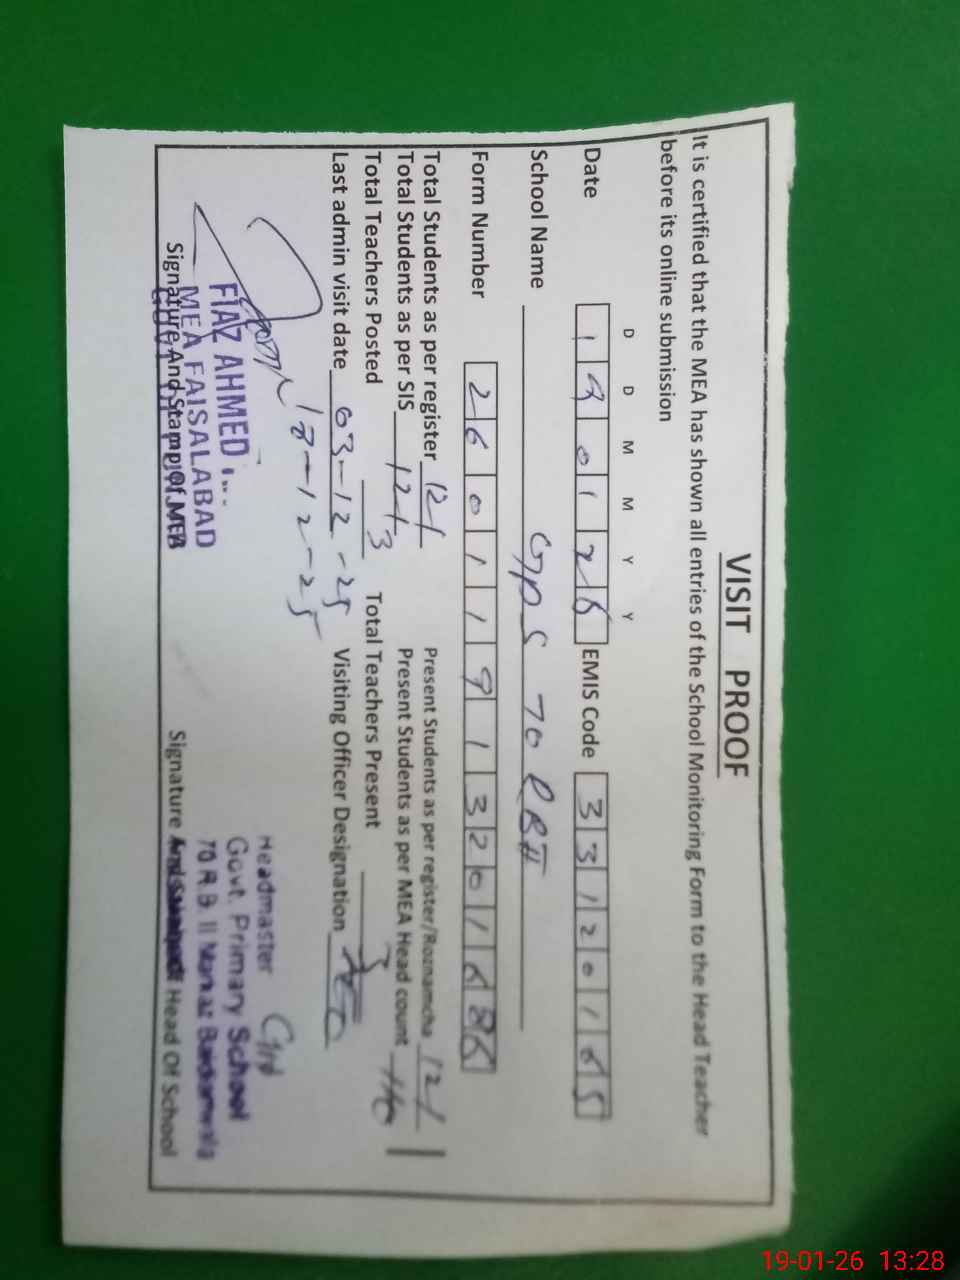 VISIT PROOF
It is certified that the MEA has shown all entries of the School Monitoring Form to the Head Teacher
before its online submission
D D M M Y Y
Date 1 9 0 1 2 6 EMIS Code 3 3 1 2 0 1 6 5
School Name GPS 70 RB II
Form Number 2 6 0 1 1 9 1 3 2 0 1 6 8 6
Total Students as per register 121 Present Students as per register/Roznamcha 121
Total Students as per SIS 121 Present Students as per MEA Head count 110
Total Teachers Posted 3 Total Teachers Present 3
Last admin visit date 03-12-25 Visiting Officer Designation AEO
18-12-25
FIAZ AHMED
MEA FAISALABAD
Signature And Stamp Of MEA
Headmaster
Govt. Primary School
70 R.B. II Markaz
Signature And Head Of School
19-01-26 13:28